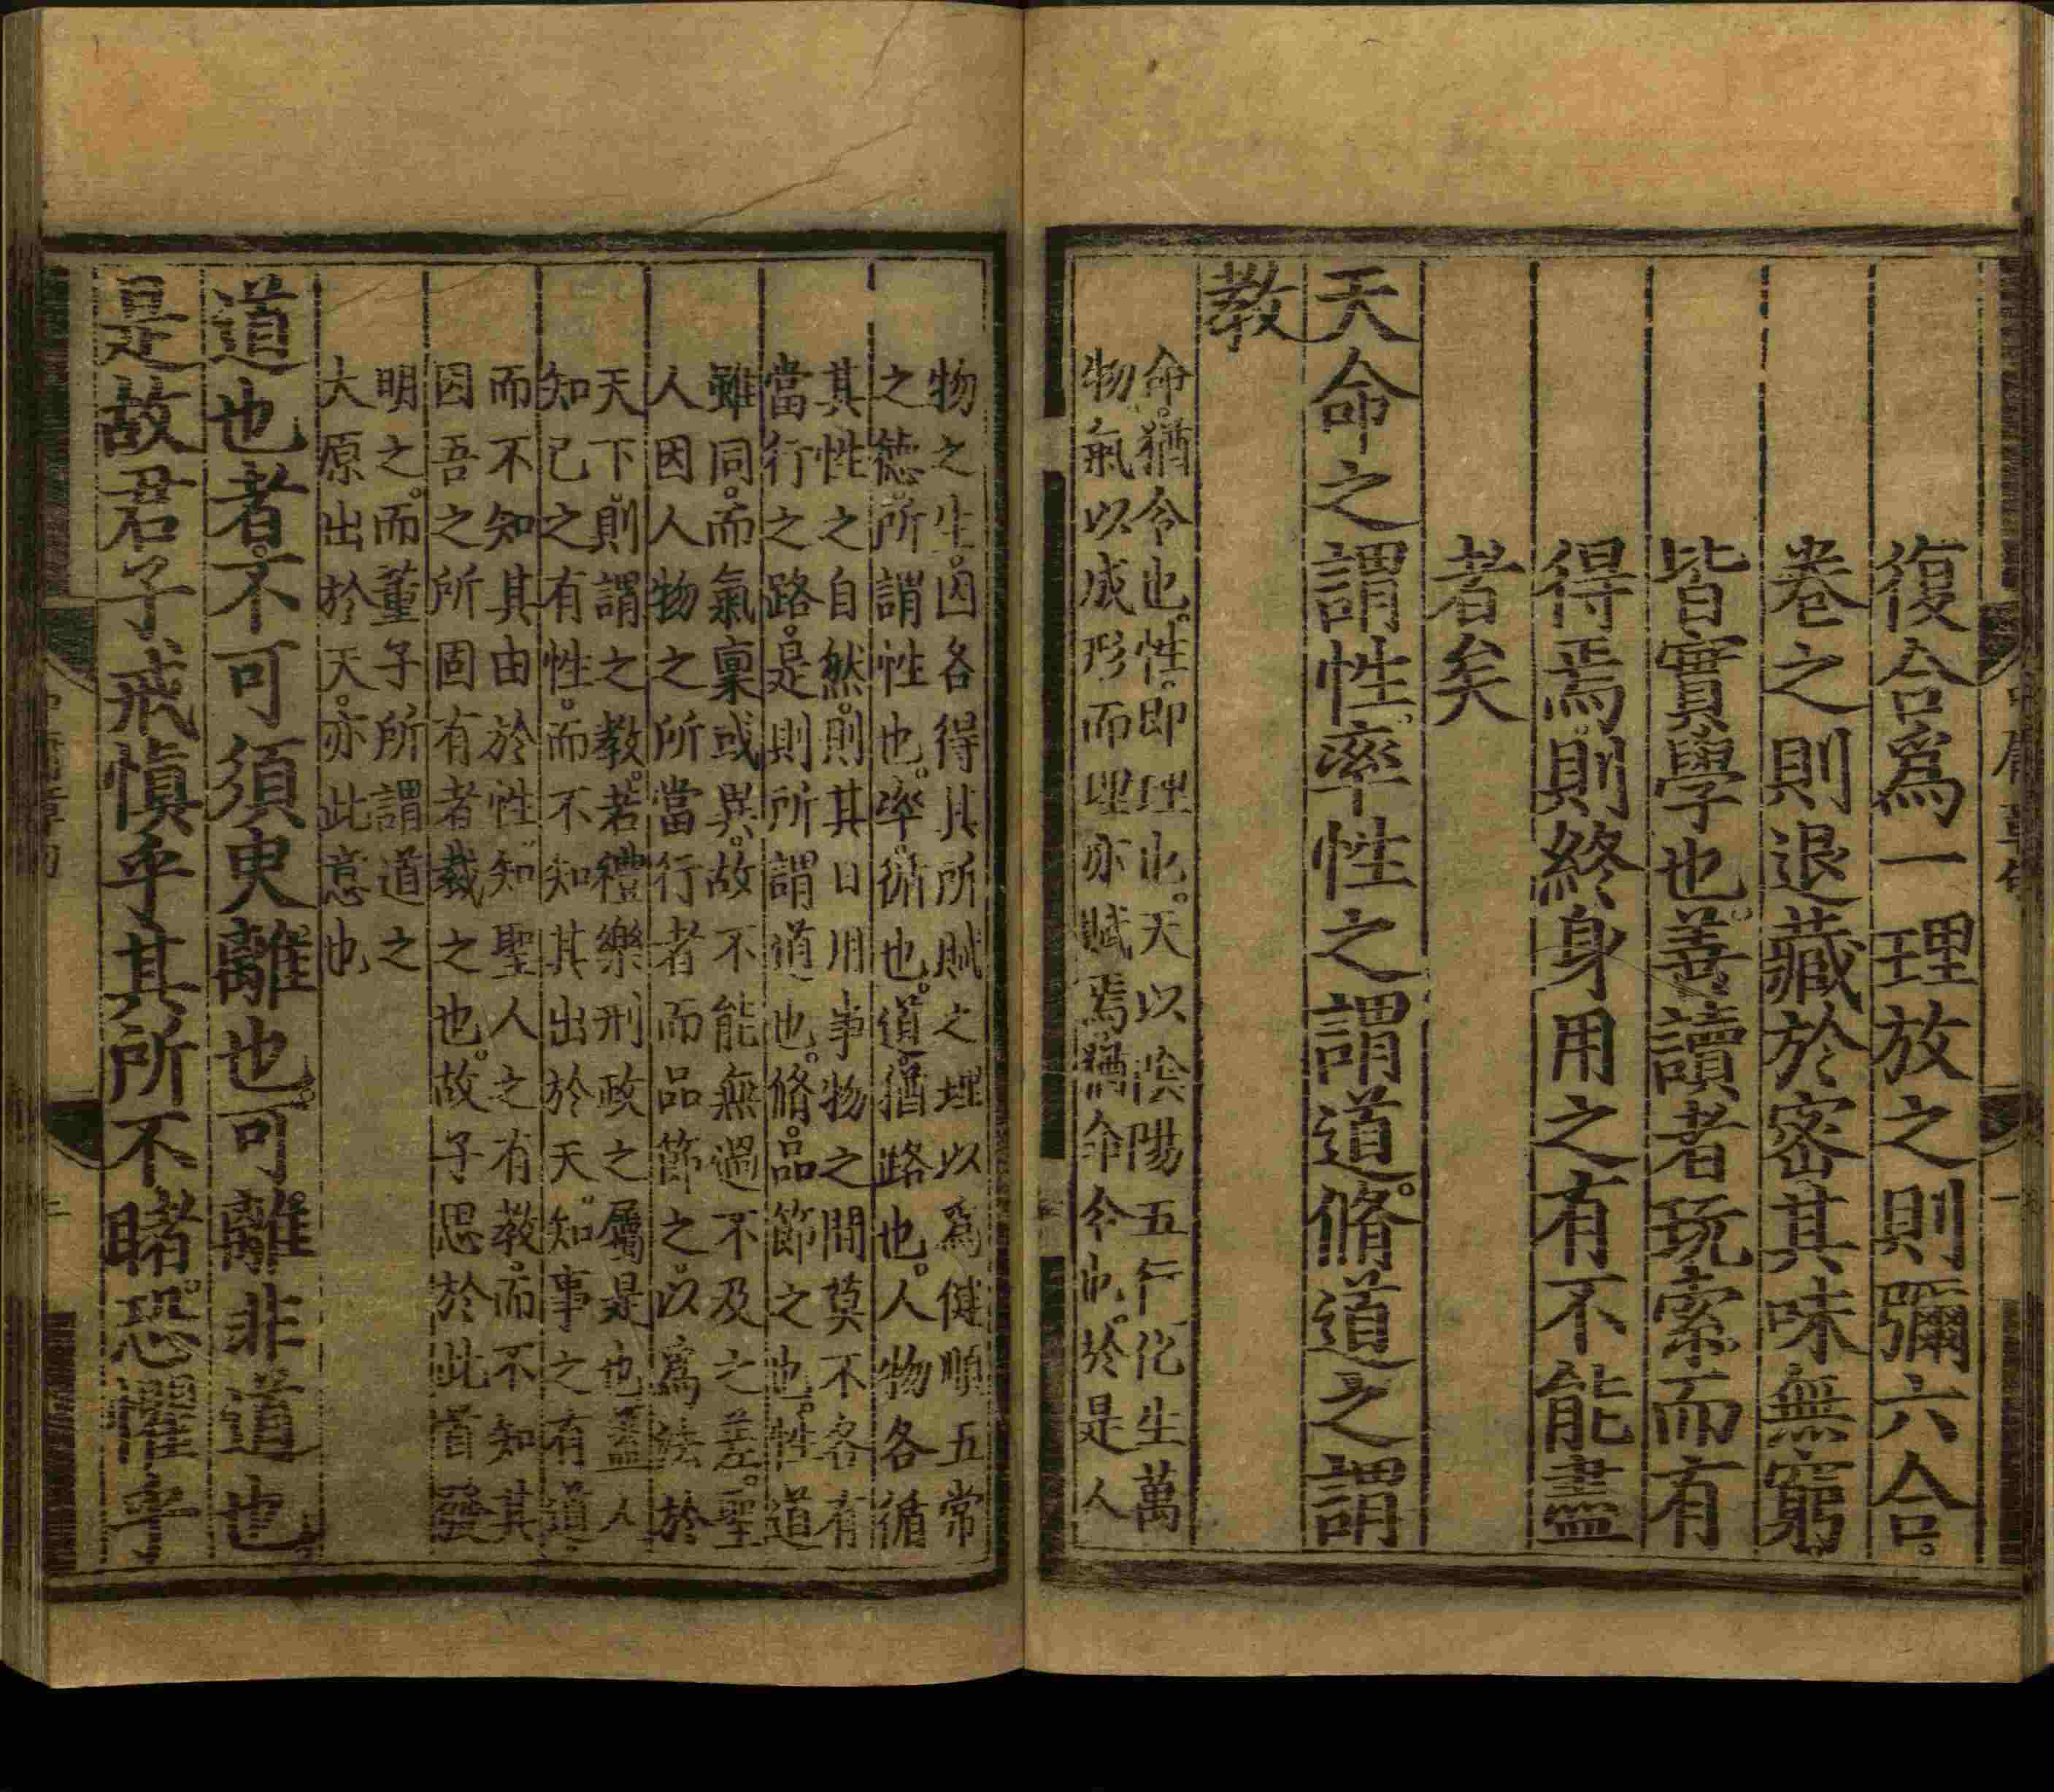 復合爲一理放之則彌六合。
卷之則退藏於密其味無窮
皆實學也。善讀者玩索而有
得焉則終身用之有不能盡
者矣
天命之謂性。率性之謂道。脩道之謂
教
命。猶令也。性。即理也。天以陰陽五行化生萬
物氣以成形而理亦賦焉。猶命令也。於是人
物之生。因各得其所賦之理以爲健順五常
之德。所謂性也。率。循也。道。猶路也。人物各循
其性之自然。則其日用事物之間莫不各有
當行之路。是則所謂道也。脩。品節之也。性道
雖同。而氣稟或異。故不能無過不及之差。聖
人因人物之所當行者而品節之。以爲法於
天下則謂之教。若禮樂刑政之屬是也蓋人
知己之有性。而不知其出於天。知事之有道
而不知其由於性知聖人之有教。而不知其
因吾之所固有者裁之也。故子思於此首發
明之。而董子所謂道之
大原出於天。亦此意也
道也者。不可須臾離也。可離非道也
是故君子戒愼乎其所不睹。恐懼乎